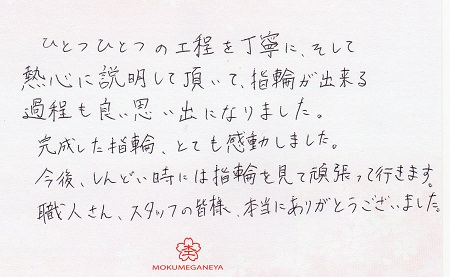 ひとつひとつの工程を丁寧に、そして
熱心に説明して頂いて、指輪が出来る
過程も良い思い出になりました。
完成した指輪、とても感動しました。
今後、しんどい時には指輪を見て頑張って行きます。
職人さん、スタッフの皆様、本当にありがとうございました。
MOKUMEGANEYA